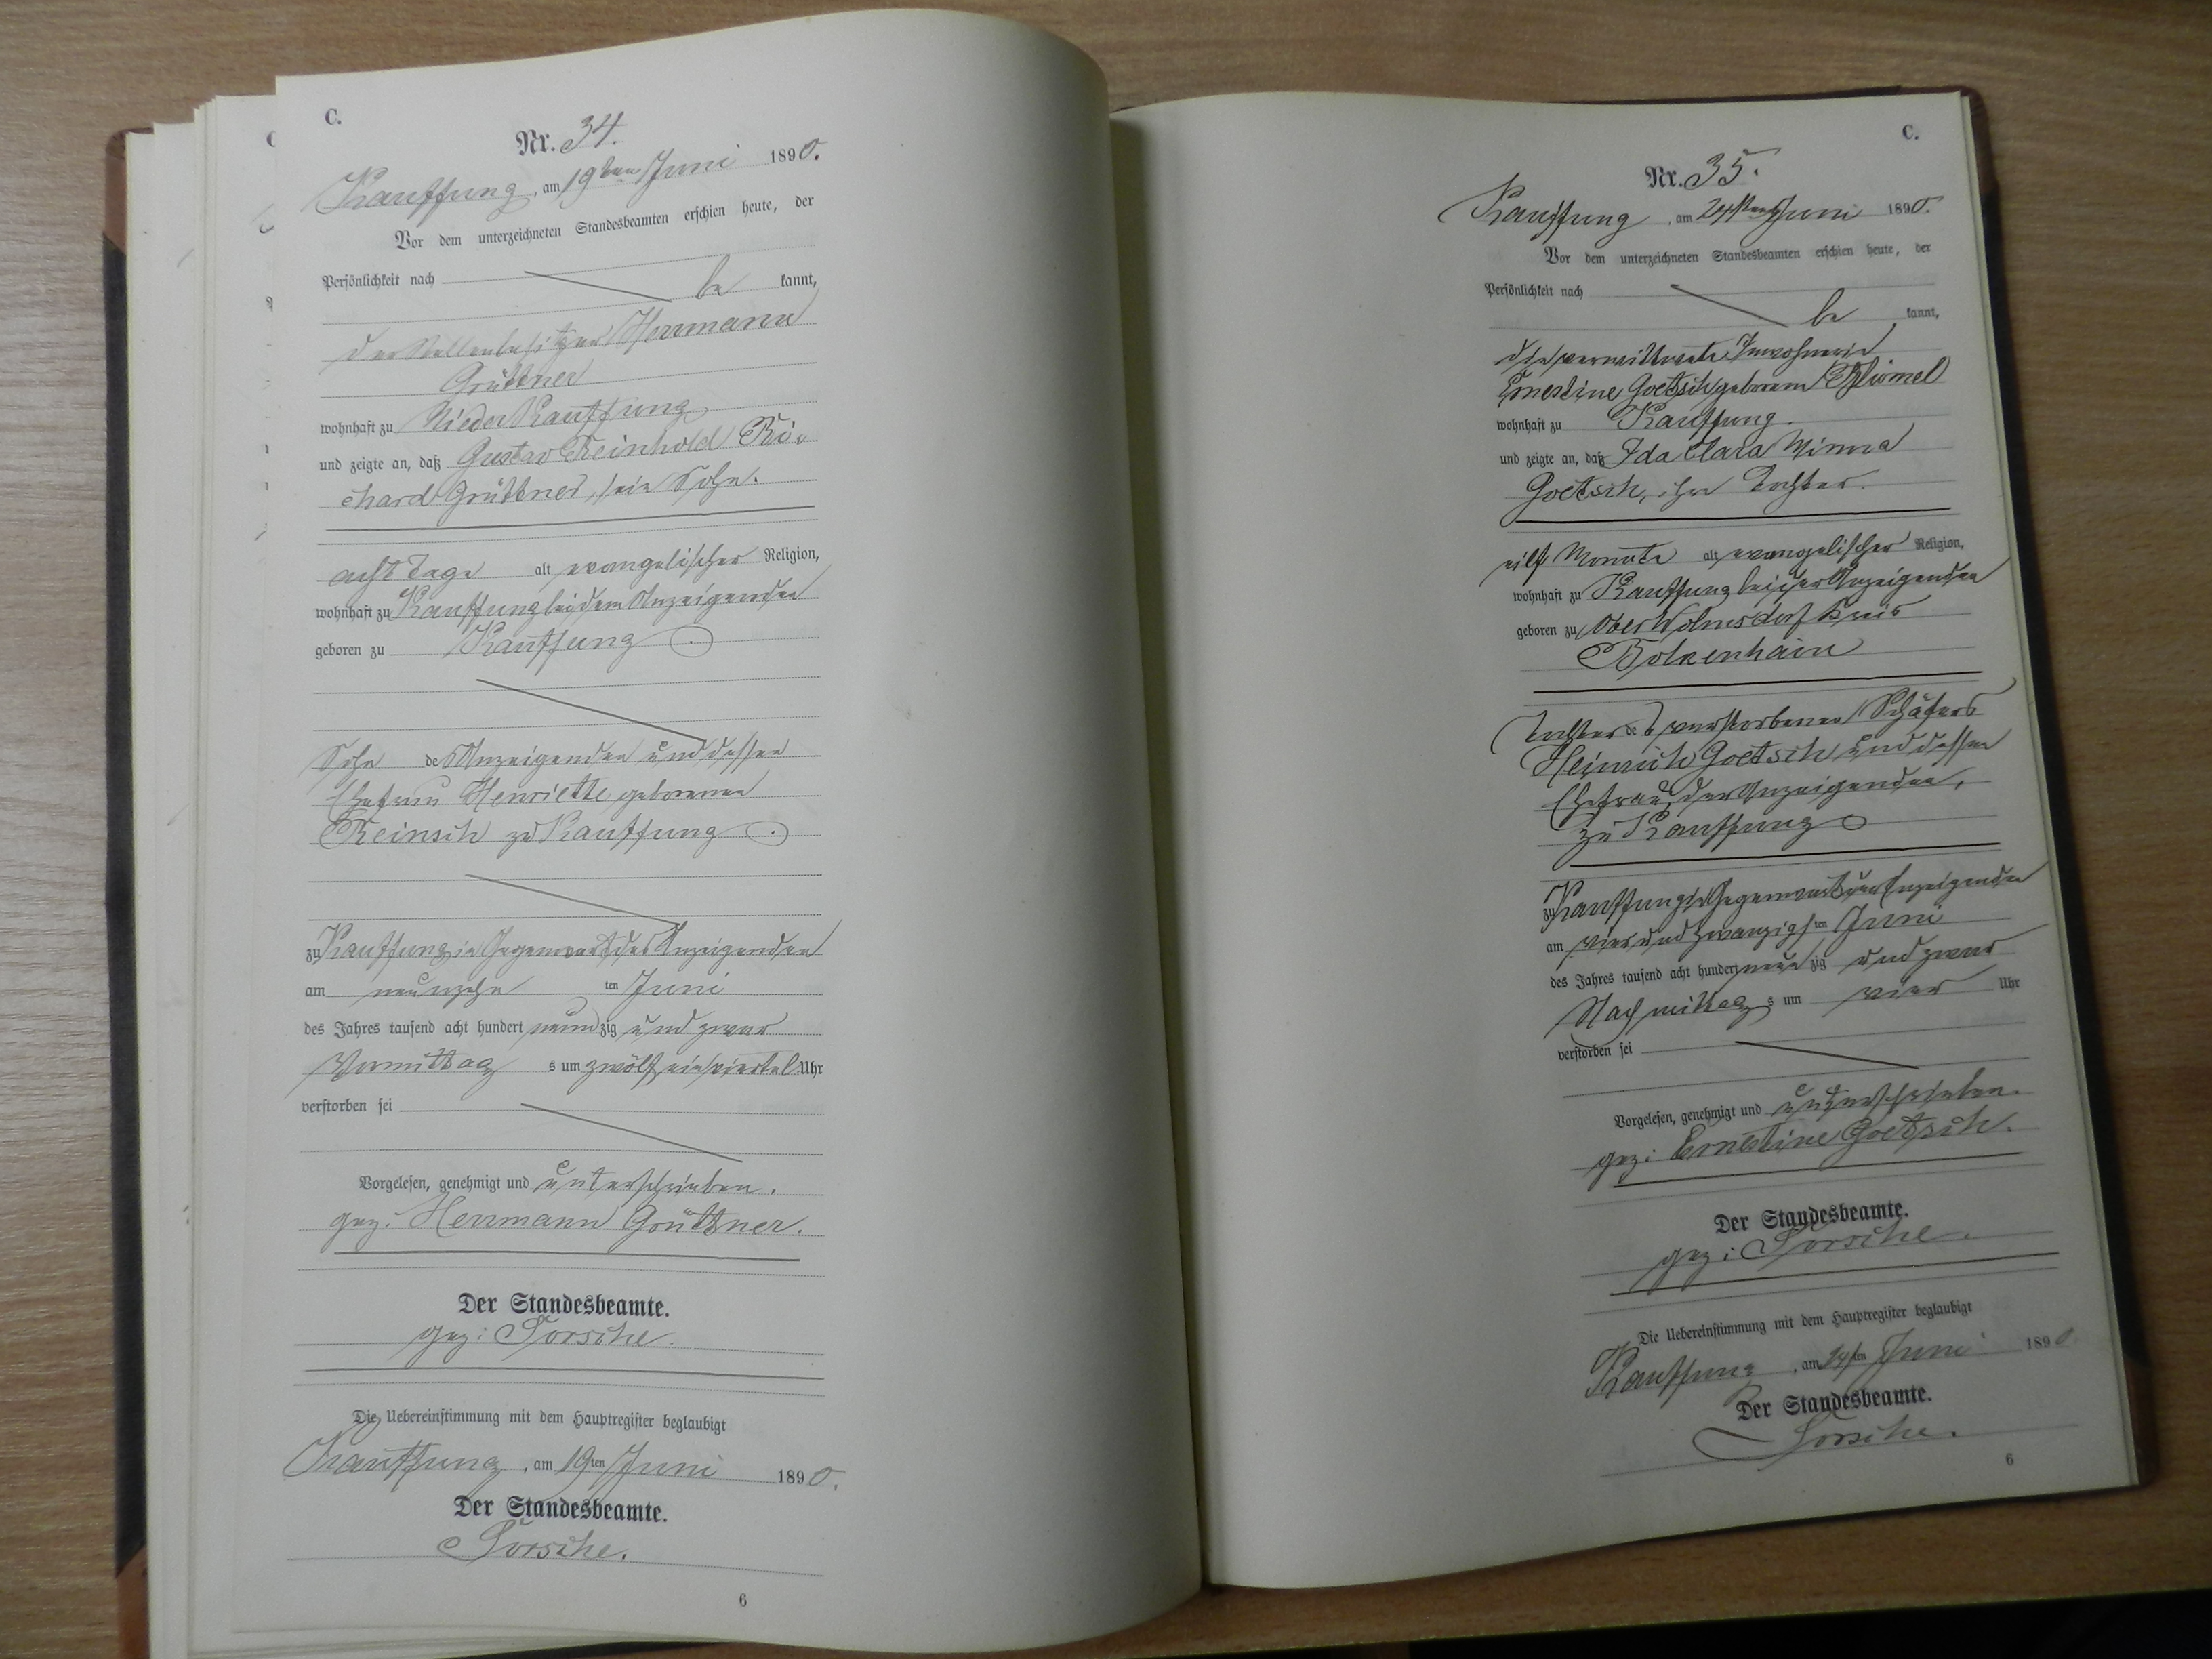 C.
Nr. 34.
Kauffung, am 19ten Juni 1890.
Vor dem unterzeichneten Standesbeamten erschien heute, der
Persönlichkeit nach be kannt,
der Stellenbesitzer Herrmann
Grüttner
wohnhaft zu Nieder Kauffung
und zeigte an, daß Gustav Reinhold Ri-
chard Grüttner, sein Sohn.
acht Tage alt evangelischer Religion,
wohnhaft zu Kauffung bei dem Anzeigenden
geboren zu Kauffung
Sohn des Anzeigenden und dessen
Ehefrau Henriette geborenen
Reinsch zu Kauffung
zu Kauffung in Gegenwart des Anzeigenden
am neunzehn ten Juni
des Jahres tausend acht hundert neun zig und zwar
Vormittag s um zwölf ein viertel Uhr
verstorben sei
Vorgelesen, genehmigt und unterschrieben.
gez: Herrmann Grüttner.
Der Standesbeamte.
gez:
Die Uebereinstimmung mit dem Hauptregister beglaubigt
Kauffung, am 19ten Juni 1890.
Der Standesbeamte.
6
C.
Nr. 35.
Kauffung, am 24ten Juni 1890.
Vor dem unterzeichneten Standesbeamten erschien heute, der
Persönlichkeit nach be kannt,
die verwittwete Inwohnerin
Ernestine Goetsch geborene Blümel
wohnhaft zu Kauffung.
und zeigte an, daß Ida Clara Minna
Goetsch, ihre Tochter.
eilf Monate alt, evangelischer Religion,
wohnhaft zu Kauffung bei der Anzeigenden
geboren zu Ober Wolmsdorf Kreis
Bolkenhain
Tochter des verstorbenen Schäfers
Heinrich Goetsch und dessen
Ehefrau, der Anzeigenden,
zu Kauffung
zu Kauffung in Gegenwart der Anzeigenden
am vier und zwanzigsten Juni
des Jahres tausend acht hundert neun zig und zwar
Nachmittag s um vier Uhr
verstorben sei
Vorgelesen, genehmigt und unterschrieben.
gez: Ernestine Goetsch.
Der Standesbeamte.
gez:
Die Uebereinstimmung mit dem Hauptregister beglaubigt
Kauffung, am 24ten Juni 1890
Der Standesbeamte.
6